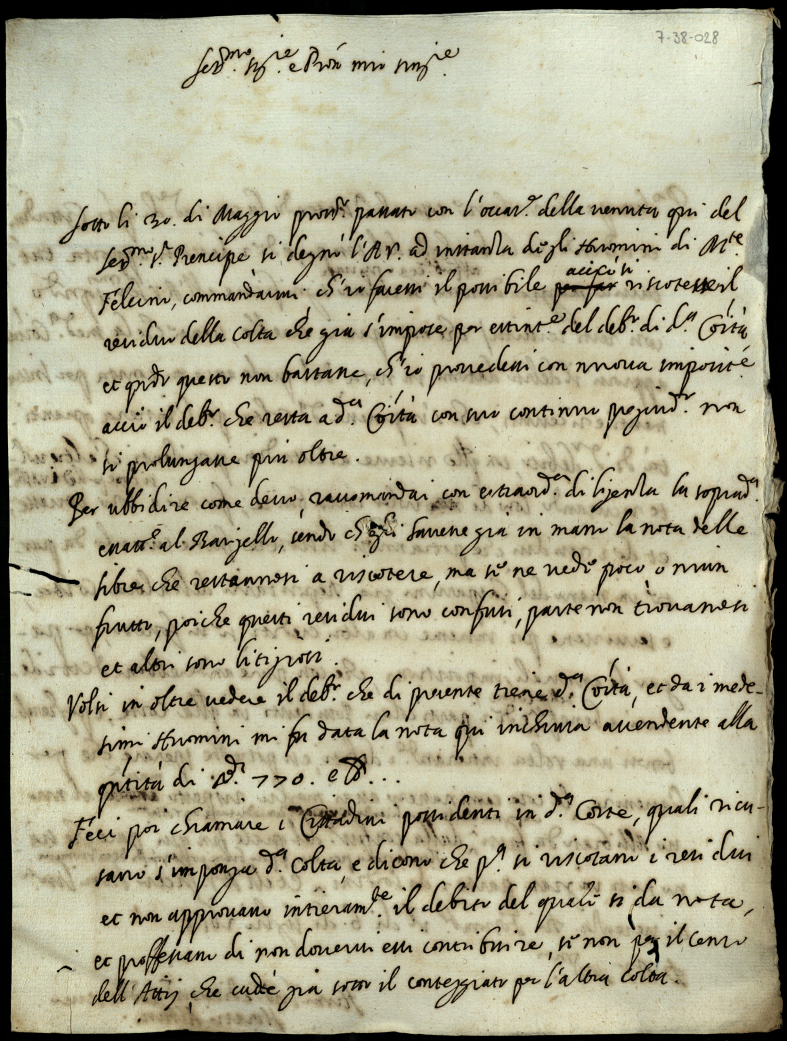 7-38-028
Ser.mo Sig.re e Pron mio sing.re
Sotto li 30. di Maggio pross.o passato con l'occas.e della venuta qui del
Ser.mo S.r Prencipe si degnò l'A.V. ad instanza degli Huomini di M.te
Felcino, commandarmi ch'io facessi il possibile acciò si riscotesse il
residuo della colta che già s'impose per estint.e del deb.o di d.a Cōità
et q.do questo non bastasse, ch'io provedessi con nuova impositē
acciò il deb.o che resta a d.a Cōità con suo continuo pregiud.o non
si prolungasse più oltre.
Per ubbidire come devo, racomandai con estraord.a diligenza la soprad.a
esatt.e al Bargello, sendo ch'egli havesse già in mano la nota delle
libre, che restavnosi a riscotere, ma se ne vede poco o niun
frutto, poiche questi residui sono confusi, parte non trovanosi
et altri sono litigiosi.
Volsi in oltre vedere il deb.o che di presente tiene d.a Cōità, et da i mede-
simi Huomini mi fu data la nota qui inclusa ascendente alla
q.tità di 770. e
Feci poi chiamare i Cittadini possidenti in d.a Corte, quali ricu-
sano s'imponga d.a Colta, e dicono che p.a si riscotano i residui
et non approvano intieram.te il debito del quale si da nota,
et proffessano di non dovervi essi contribuire, se non per il censo
dell'Attij, che cade già sotto il conteggiato per l'altra colta.